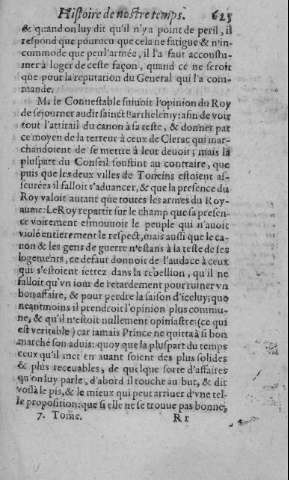 Histoire de nostre temps. 625
& quand on luy dit qu'il n'y a point de peril, il
respond que pourueu que cela ne fatigue & n'in-
commode que peu l'armée, il l'a faut accoustu-
mer à loger de ceste façon, quand ce ne seroit
que pour la reputation du General qui l'a com-
mande.
M. le Connestable suiuoit l'opinion du Roy
de sejourner audit sainct Barthelemy: afin de voir
tout l'attirail du canon à sa teste, & donner par
ce moyen de la terreur à ceux de Clerac qui mar-
chandoient de se mettre à leur deuoir; mais la
pluspart du Conseil soustint au contraire, que
puis que les deux villes de Toneins estoient as-
seurées il falloit s'aduancer, & que la presence du
Roy valoit autant que toutes les armes du Roy-
aume: Le Roy repartit sur le champ que sa presen-
ce voirement esmouuoit le peuple qui n'auoit
violé entierement le respect, mais aussi que le ca-
non & les gens de guerre n'estans à la teste de ses
logements, ce defaut donnoit de l'audace à ceux
qui s'estoient iettez dans la rebellion, qu'il ne
falloit qu'vn iour de retardement pour ruiner vn
bon affaire, & pour perdre la saison d'iceluy; que
neantmoins il prendroit l'opinion plus commu-
ne, & qu'il n'estoit nullement opiniastre: (ce qui
est veritable) car iamais Prince ne quitta à si bon
marché son aduis: quoy que la pluspart du temps
ceux qu'il met en auant soient des plus solides
& plus receuables, de quelque sorte d'affaires
qu'on luy parle, d'abord il touche au but, & dit
voilà le pis, & le mieux qui peut arriuer d'vne tel-
le proposition: que si elle ne se trouue pas bonne,
7. Tome. Rr